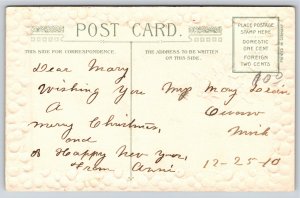 POST CARD.
PLACE POSTAGE
STAMP HERE
DOMESTIC
ONE CENT
FOREIGN
TWO CENTS
THIS SIDE FOR CORRESPONDENCE.
THE ADDRESS TO BE WRITTEN
ON THIS SIDE.
Dear Mary
Wishing You
A
merry Christmas,
and
A Happy New Year,
From Annie
Miss May
Owosso
Mich
12-25-10